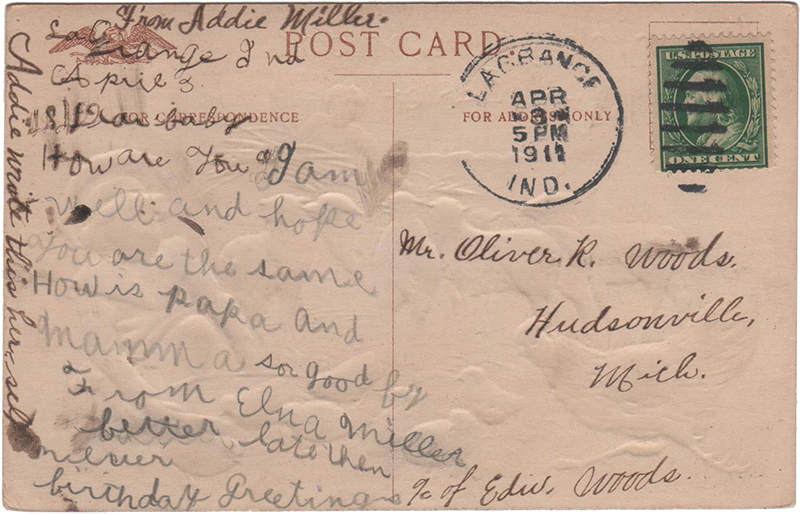 From Addie Miller.
LaGrange Ind
April 3
POST CARD.
FOR CORRESPONDENCE
Dear baby
How are You I am
well and hope
You are the same
How is papa and
mamma so good by
From Elna Miller
better late then
never
birthday Greetings
Addie wrote this her self
LAGRANGE
APR
3
5 PM
1911
IND.
FOR ADDRESS ONLY
U.S. POSTAGE
ONE CENT
Mr. Oliver R. Woods.
Hudsonville,
Mich.
c/o of Edw. Woods.